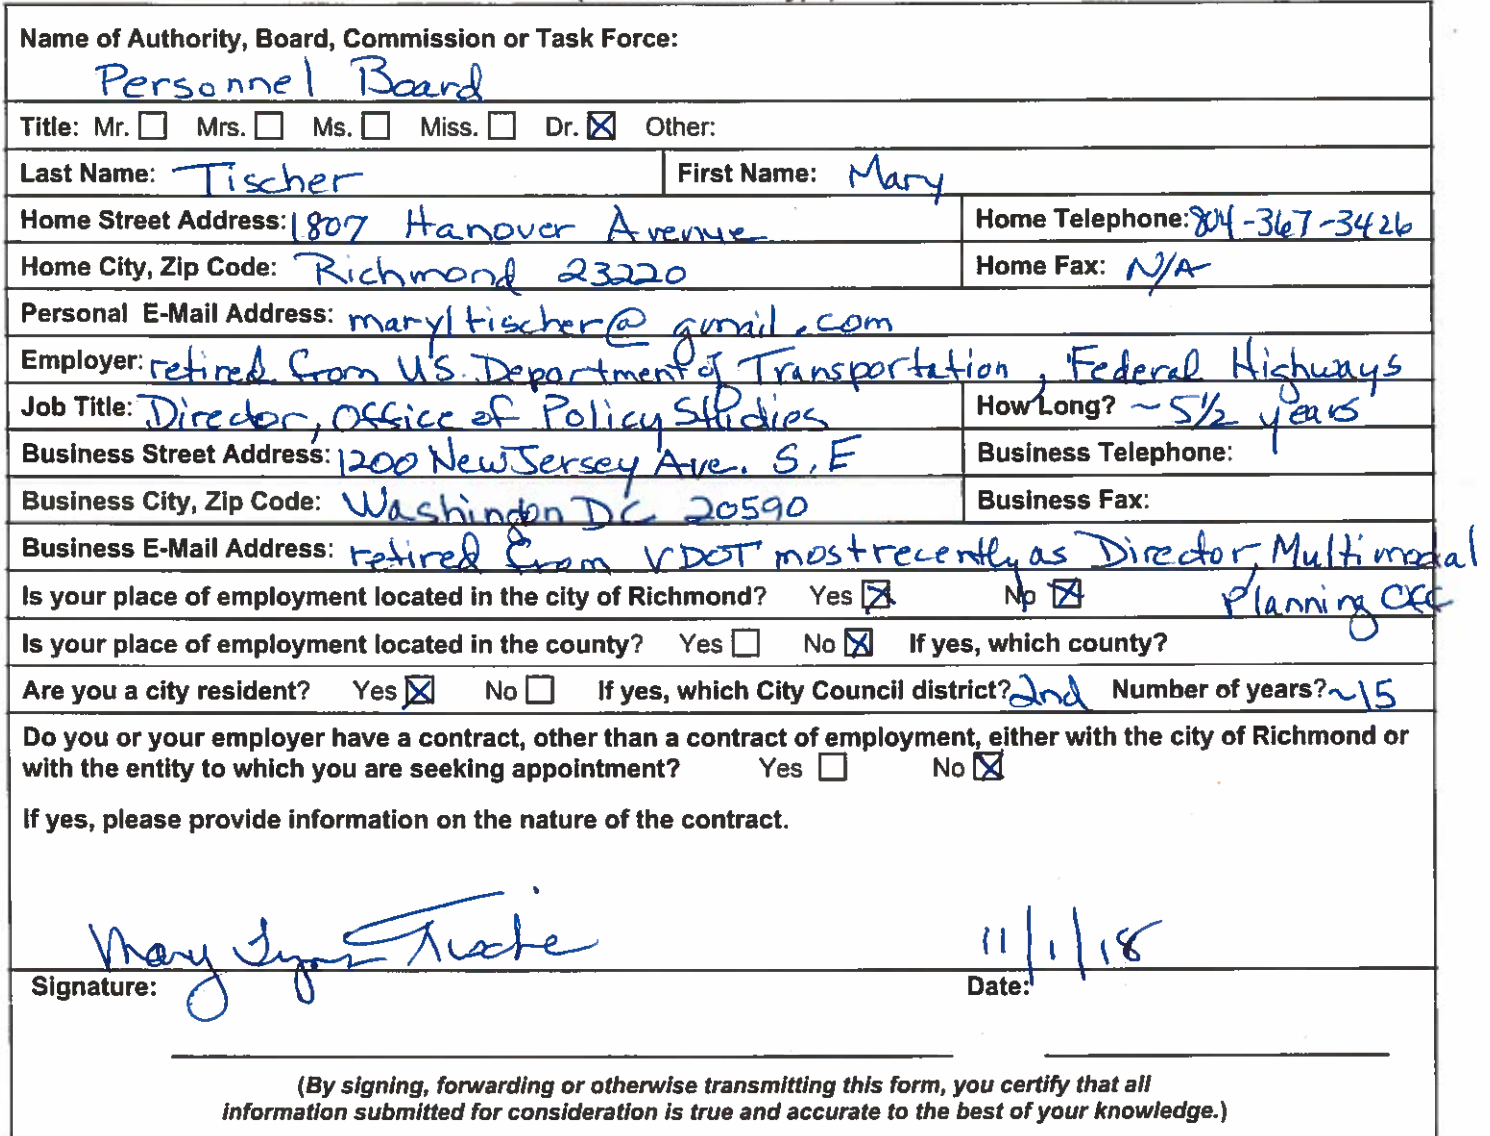 Name of Authority, Board, Commission or Task Force:
Personnel Board
Title: Mr. ☐ Mrs. ☐ Ms. ☐ Miss. ☐ Dr. ☒ Other:
Last Name: Tischer First Name: Mary
Home Street Address: 1807 Hanover Avenue Home Telephone: 804-367-3426
Home City, Zip Code: Richmond 23220 Home Fax: N/A
Personal E-Mail Address: maryltischer@gmail.com
Employer: retired from U.S. Department of Transportation, Federal Highways
Job Title: Director, Office of Policy Studies How Long? ~5½ years
Business Street Address: 1200 New Jersey Ave. S.E Business Telephone:
Business City, Zip Code: Washington DC 20590 Business Fax:
Business E-Mail Address: retired from VDOT most recently as Director, Multimodal
Is your place of employment located in the city of Richmond? Yes ☒ No ☒ Planning Off
Is your place of employment located in the county? Yes ☐ No ☒ If yes, which county?
Are you a city resident? Yes ☒ No ☐ If yes, which City Council district? 2nd Number of years? ~15
Do you or your employer have a contract, other than a contract of employment, either with the city of Richmond or
with the entity to which you are seeking appointment? Yes ☐ No ☒
If yes, please provide information on the nature of the contract.
Mary Lynn Tischer 11/1/18
Signature: Date:
(By signing, forwarding or otherwise transmitting this form, you certify that all
information submitted for consideration is true and accurate to the best of your knowledge.)